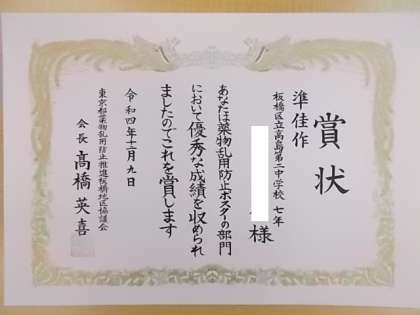 賞状
準佳作
板橋区立高島第二中学校 七年
様
あなたは薬物乱用防止ポスターの部門
において優秀な成績を収められ
ましたのでこれを賞します
令和四年十一月九日
東京都薬物乱用防止推進板橋地区協議会
会長 高橋英喜